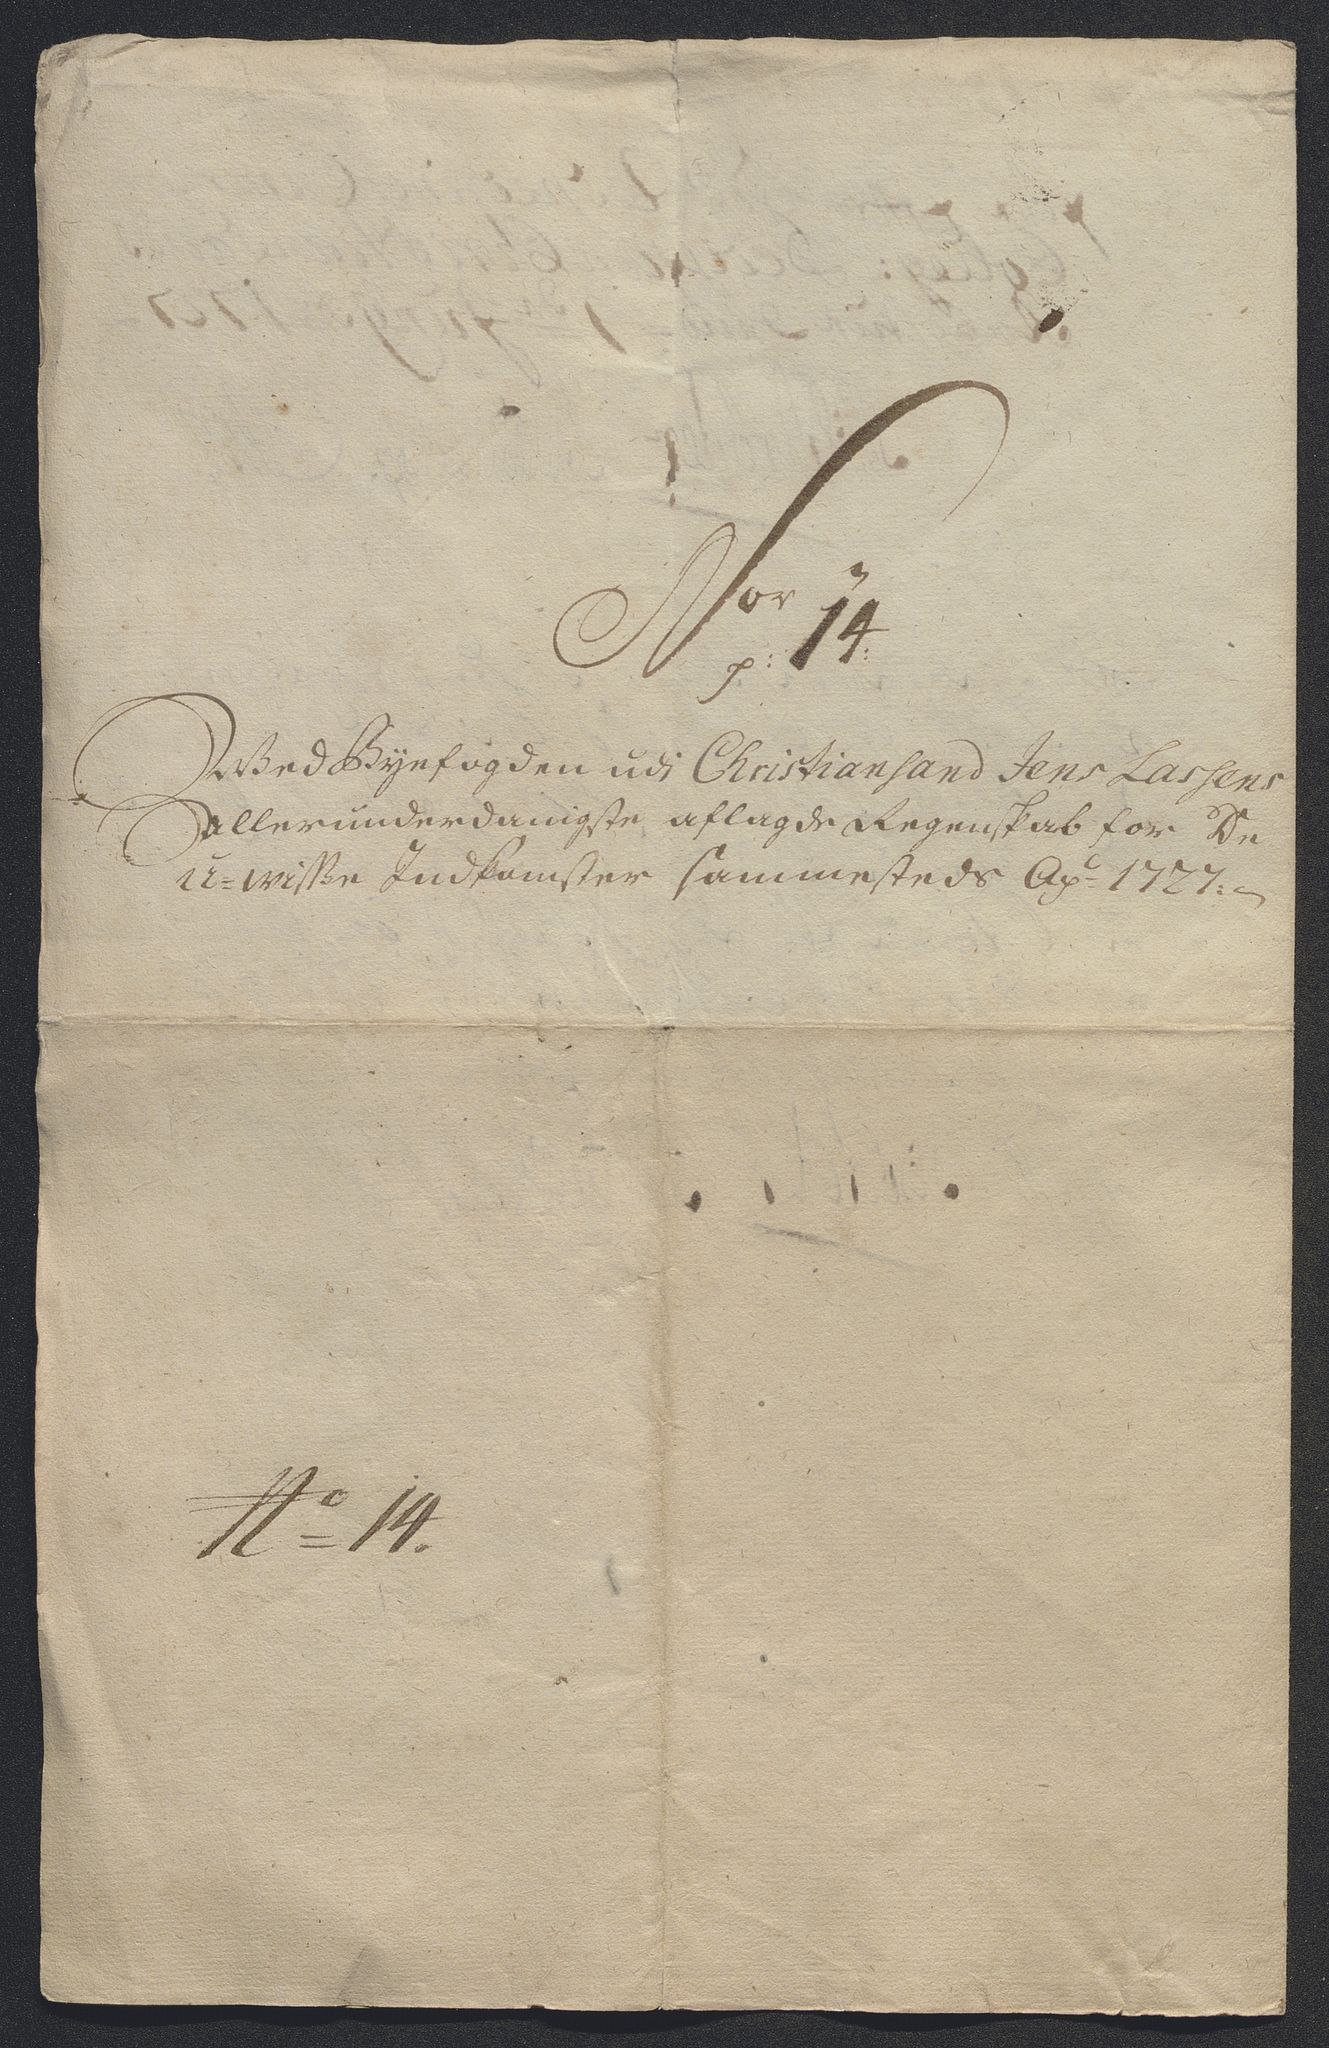 Nor
p: 14:
Wed Byefogden udi Christiansand Jens Lassens
allerunderdanigste aflagde Regenskab for De
U=wisse Indkomster sammesteds Ao 1727:
No 14.